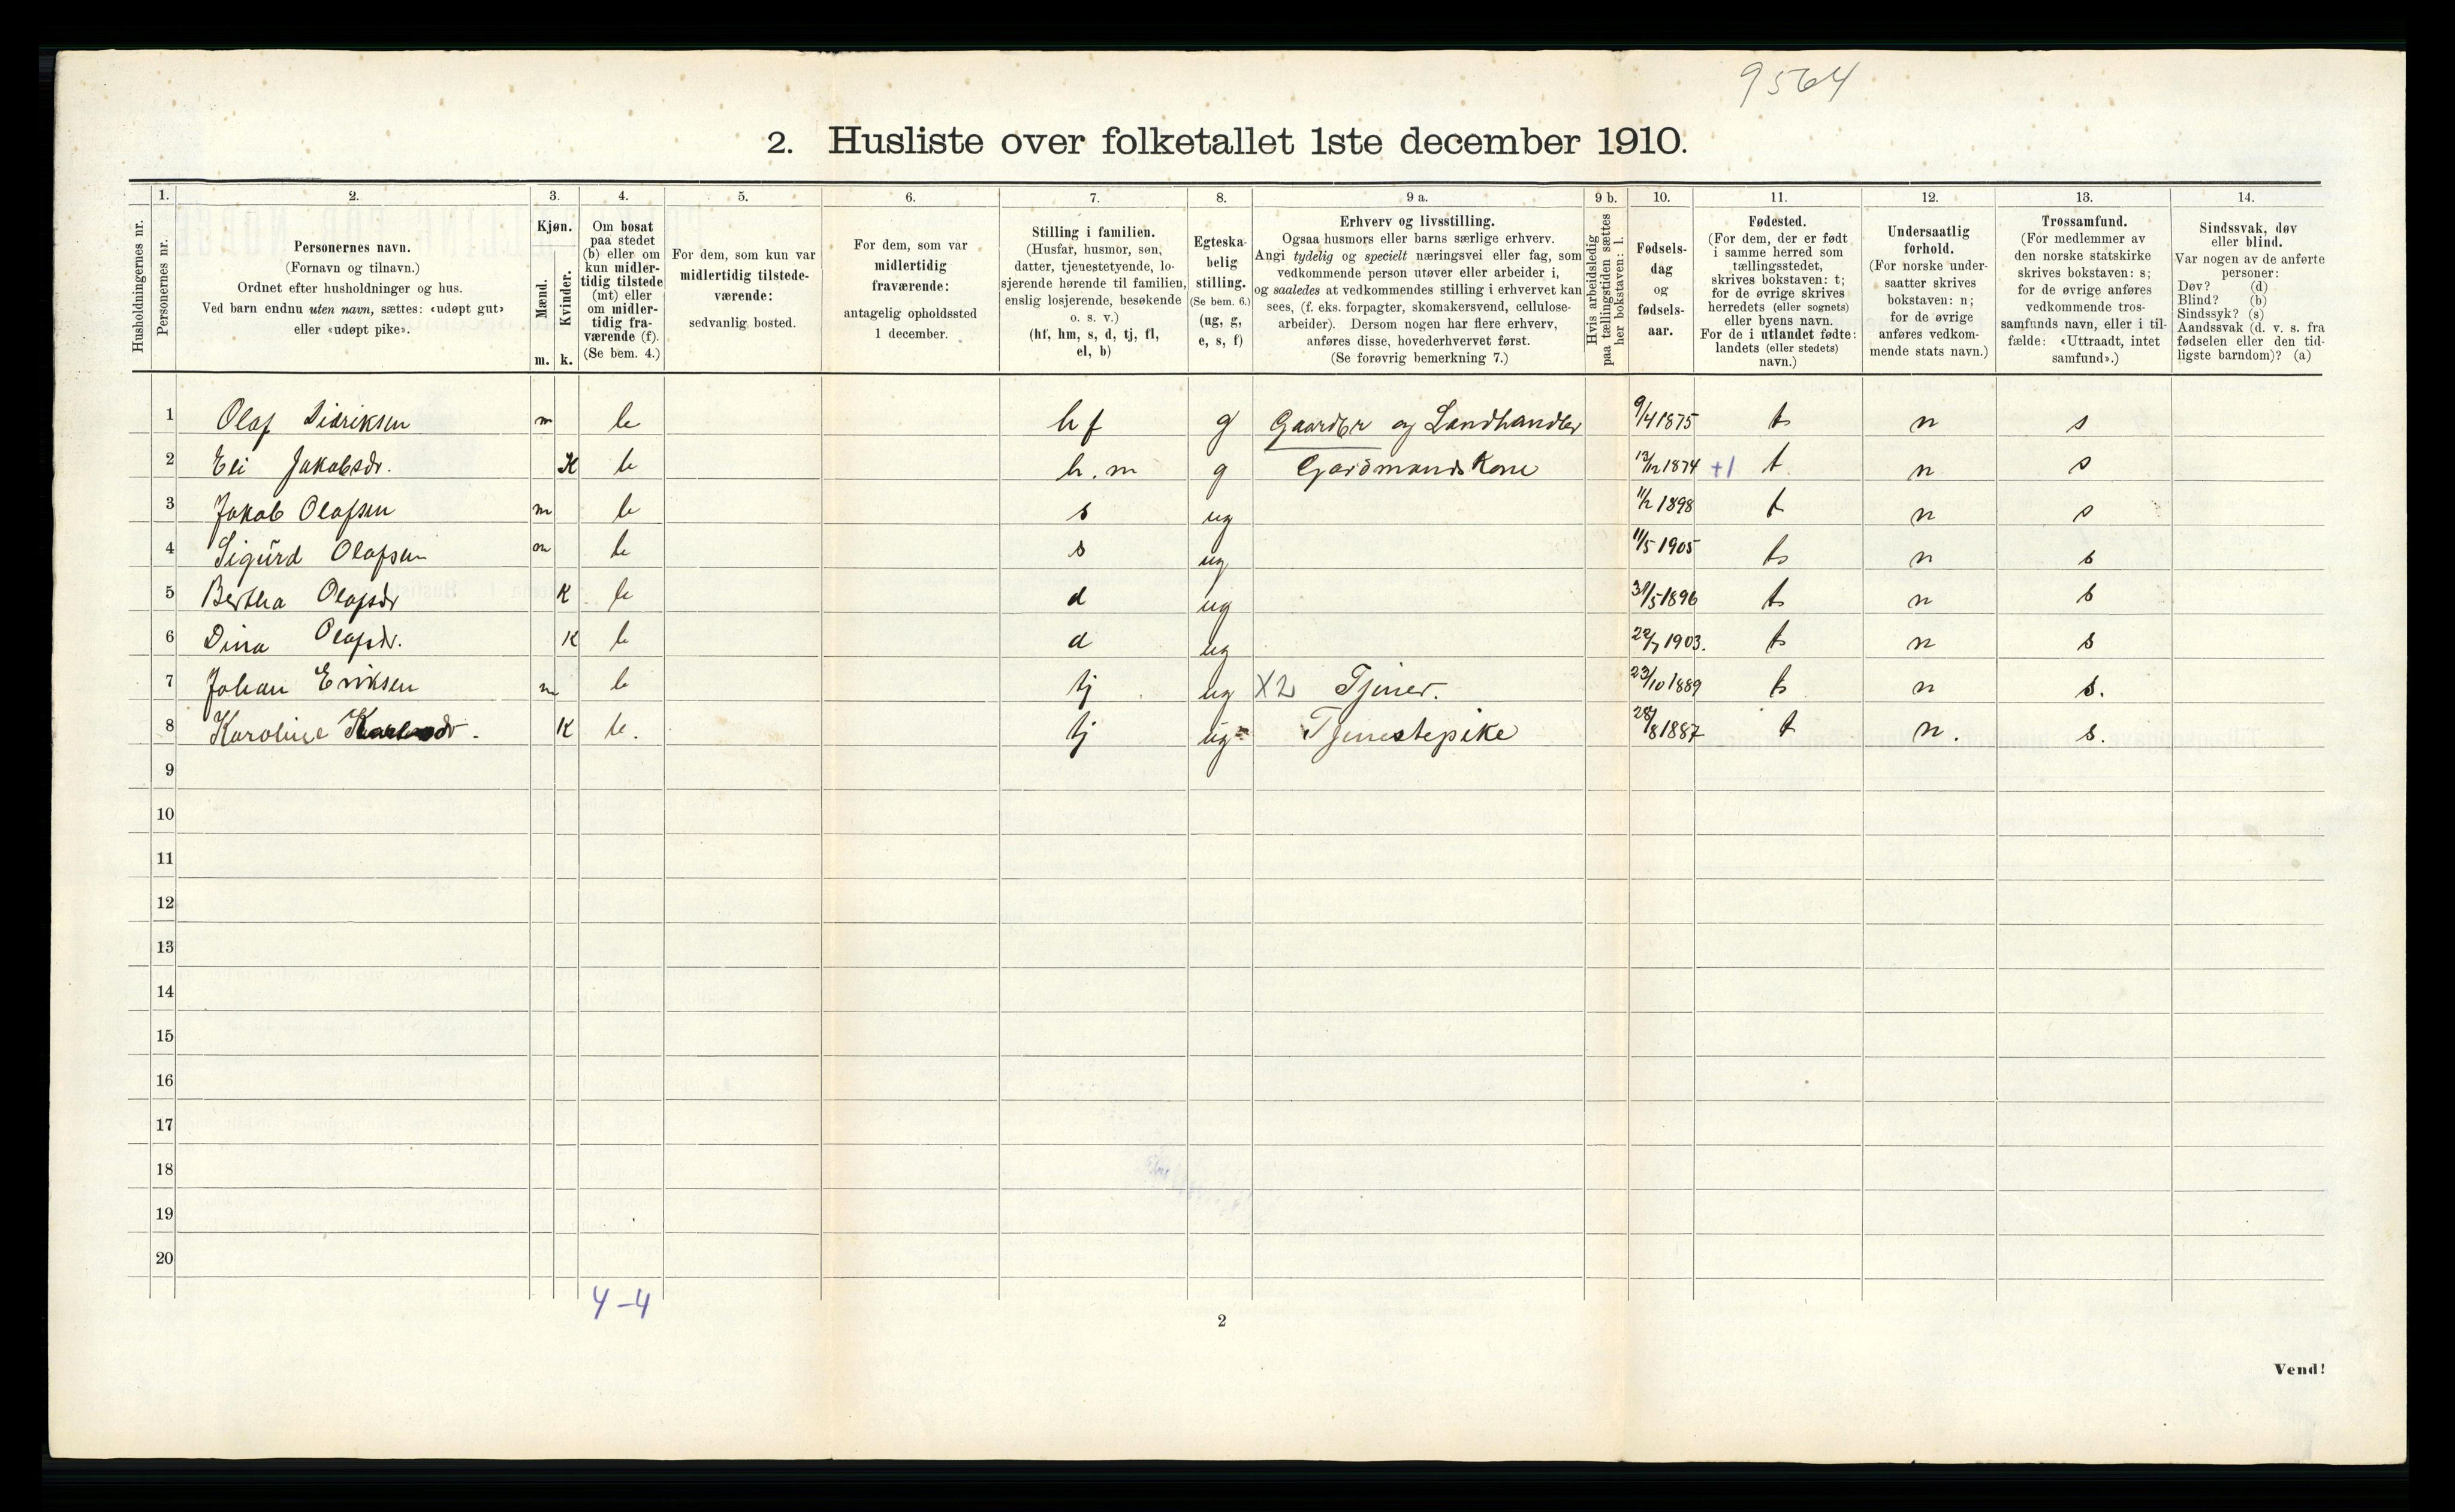 9564
2. Husliste over folketallet 1ste december 1910.
Husholdningernes nr.
1.
Personernes nr.
2.
Personernes navn.
(Fornavn og tilnavn.)
Ordnet efter husholdninger og hus.
Ved barn endnu uten navn, sættes: «udøpt gut»
eller «udøpt pike».
3.
Kjøn.
Mænd.
Kvinder.
m. k.
4.
Om bosat
paa stedet
(b) eller om
kun midler-
tidig tilstede
(mt) eller
om midler-
tidig fra-
værende (f).
(Se bem. 4.)
5.
For dem, som kun var
midlertidig tilstede-
værende:
sedvanlig bosted.
6.
For dem, som var
midlertidig
fraværende:
antagelig opholdssted
1 december.
7.
Stilling i familien.
(Husfar, husmor, søn,
datter, tjenestetyende, lo-
sjerende hørende til familien,
enslig losjerende, besøkende
o. s. v.)
(hf, hm, s, d, tj, fl,
el, b)
8.
Egteska-
belig
stilling.
(Se bem. 6.)
(ug, g,
e, s, f)
9 a.
Erhverv og livsstilling.
Ogsaa husmors eller barns særlige erhverv.
Angi tydelig og specielt næringsvei eller fag, som
vedkommende person utøver eller arbeider i,
og saaledes at vedkommendes stilling i erhvervet kan
sees, (f. eks. forpagter, skomakersvend, cellulose-
arbeider). Dersom nogen har flere erhverv,
anføres disse, hovederhvervet først.
(Se forøvrig bemerkning 7.)
9 b.
Hvis arbeidsledig
paa tællingstiden sættes
her bokstaven: l.
10.
Fødsels-
dag
og
fødsels-
aar.
11.
Fødested.
(For dem, der er født
i samme herred som
tællingsstedet,
skrives bokstaven: t;
for de øvrige skrives
herredets (eller sognets)
eller byens navn.
For de i utlandet fødte:
landets (eller stedets)
navn.)
12.
Undersaatlig
forhold.
(For norske under-
saatter skrives
bokstaven: n;
for de øvrige
anføres vedkom-
mende stats navn.)
13.
Trossamfund.
(For medlemmer av
den norske statskirke
skrives bokstaven: s;
for de øvrige anføres
vedkommende tros-
samfunds navn, eller i til-
fælde: «Uttraadt, intet
samfund».)
14.
Sindssvak, døv
eller blind.
Var nogen av de anførte
personer:
Døv? (d)
Blind? (b)
Sindssyk? (s)
Aandssvak (d. v. s. fra
fødselen eller den tid-
ligste barndom)? (a)
1 Olaf Didriksen m b hf g Gaardbr og Landhandler 9/4 1875 t n s
2 Eli Jakobsdr. K b h.m g Gardmands Kone 13/12 1874 +1 t n s
3 Jakob Olafsen m b s ug 11/2 1898 t n s
4 Sigurd Olafsen m b s ug 11/5 1905 t n s
5 Bertha Olafsdr K b d ug 31/5 1896 t n s
6 Dina Olafsdr. K b d ug 22/7 1903. t n s
7 Johan Eriksen m b tj ug X2 Tjener. 23/10 1889 t n s.
8 Karoline K b. tj ug Tjenestepike 28/8 1887 t n. s.
9
10
11
12
13
14
15
16
17
18
19
20
4-4
2
Vend!